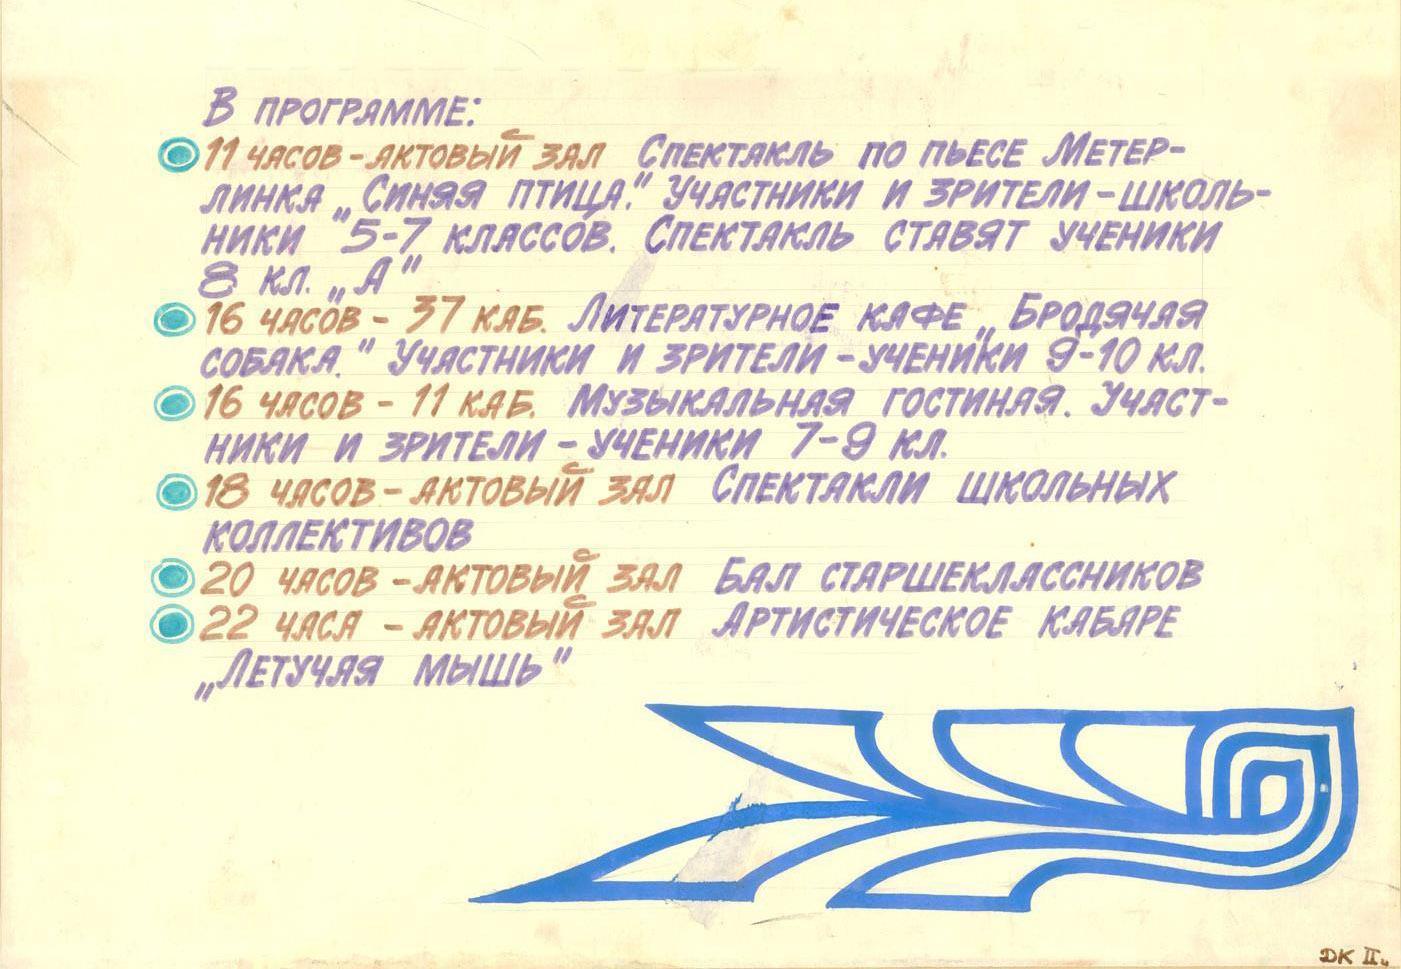 В ПРОГРАММЕ:
11 ЧАСОВ - АКТОВЫЙ ЗАЛ СПЕКТАКЛЬ ПО ПЬЕСЕ МЕТЕР-
ЛИНКА „СИНЯЯ ПТИЦА." УЧАСТНИКИ И ЗРИТЕЛИ - ШКОЛЬ-
НИКИ 5-7 КЛАССОВ. СПЕКТАКЛЬ СТАВЯТ УЧЕНИКИ
8 КЛ. „А"
16 ЧАСОВ - 37 КАБ. ЛИТЕРАТУРНОЕ КАФЕ „БРОДЯЧАЯ
СОБАКА." УЧАСТНИКИ И ЗРИТЕЛИ - УЧЕНИКИ 9-10 КЛ.
16 ЧАСОВ - 11 КАБ. МУЗЫКАЛЬНАЯ ГОСТИНАЯ. УЧАСТ-
НИКИ И ЗРИТЕЛИ - УЧЕНИКИ 7-9 КЛ.
18 ЧАСОВ - АКТОВЫЙ ЗАЛ СПЕКТАКЛИ ШКОЛЬНЫХ
КОЛЛЕКТИВОВ
20 ЧАСОВ - АКТОВЫЙ ЗАЛ БАЛ СТАРШЕКЛАССНИКОВ
22 ЧАСА - АКТОВЫЙ ЗАЛ АРТИСТИЧЕСКОЕ КАБАРЕ
„ЛЕТУЧАЯ МЫШЬ"
ДК